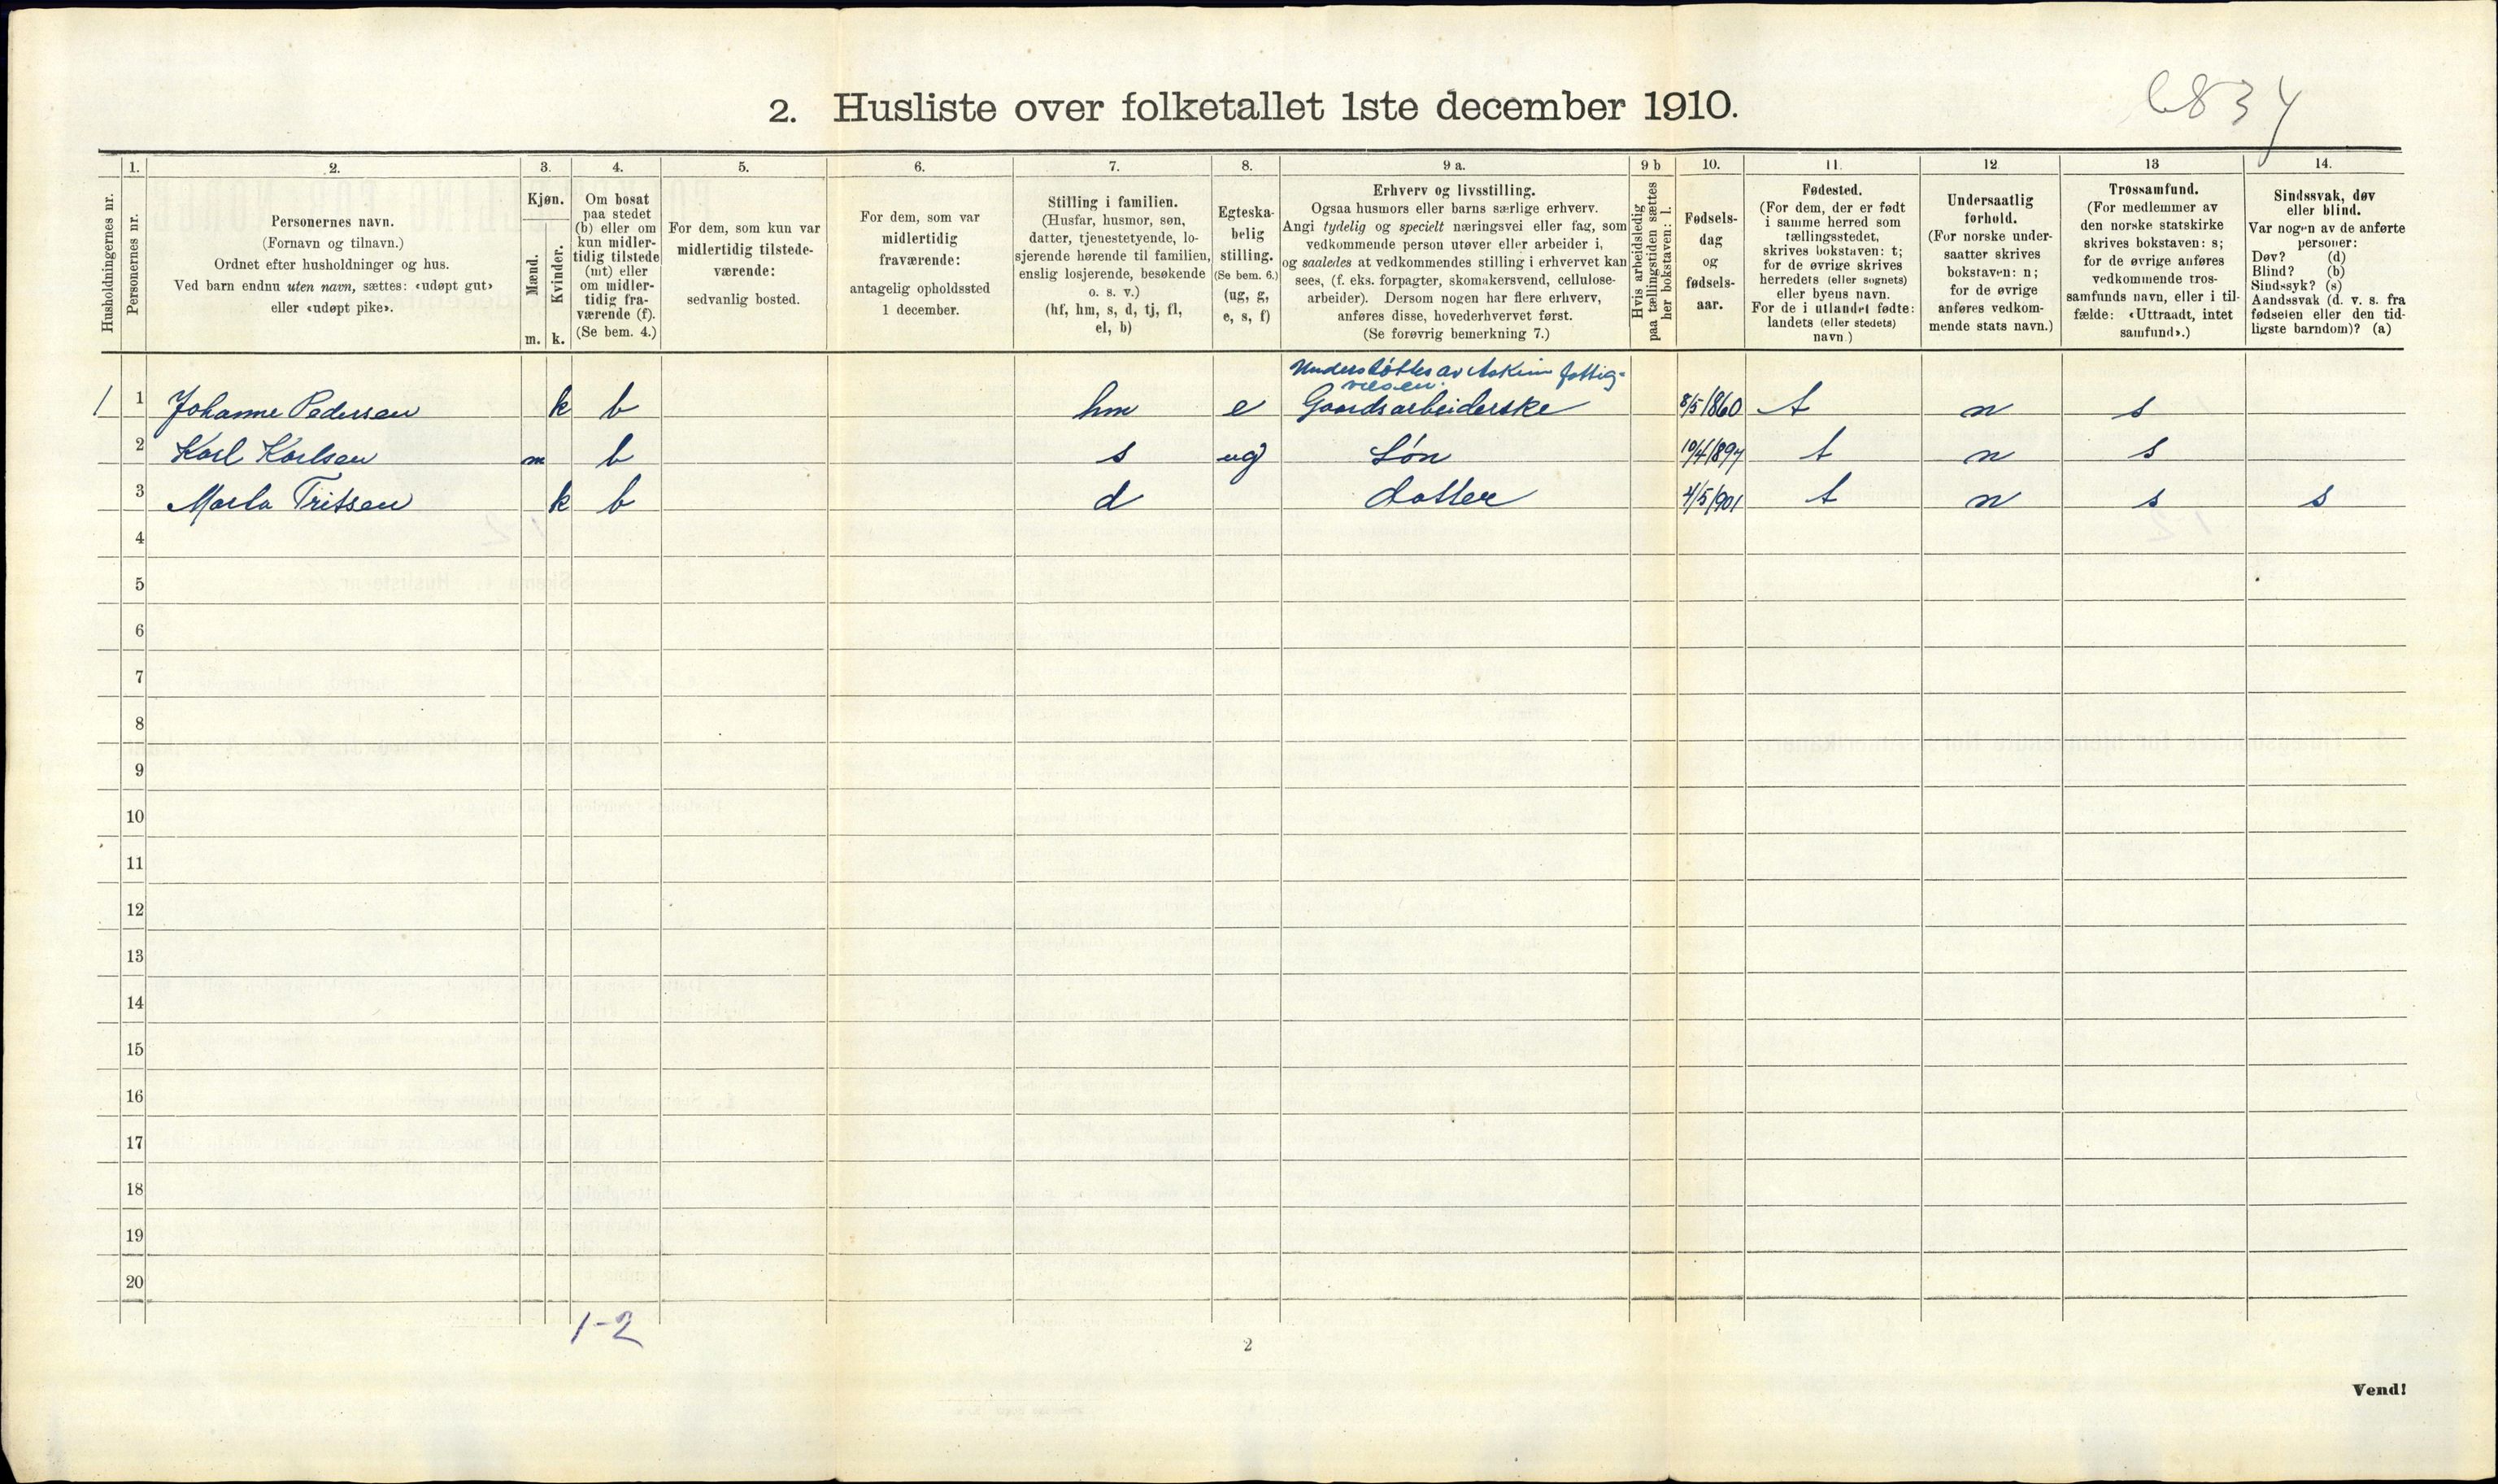 6834
2. Husliste over folketallet 1ste december 1910.
1. 2. 3. 4. 5. 6. 7. 8. 9 a. 9 b 10. 11. 12 13 14.
Husholdningernes nr.
Personernes nr.
Personernes navn.
(Fornavn og tilnavn.)
Ordnet efter husholdninger og hus.
Ved barn endnu uten navn, sættes: «udøpt gut»
eller «udøpt pike».
Kjøn.
Mænd.
Kvinder.
m. k.
Om bosat
paa stedet
(b) eller om
kun midler-
tidig tilstede
(mt) eller
om midler-
tidig fra-
værende (f).
(Se bem. 4.)
For dem, som kun var
midlertidig tilstede-
værende:
sedvanlig bosted.
For dem, som var
midlertidig
fraværende:
antagelig opholdssted
1 december.
Stilling i familien.
(Husfar, husmor, søn,
datter, tjenestetyende, lo-
sjerende hørende til familien,
enslig losjerende, besøkende
o. s. v.)
(hf, hm, s, d, tj, fl,
el, b)
Egteska-
belig
stilling.
(Se bem. 6.)
(ug, g,
e, s, f)
Erhverv og livsstilling.
Ogsaa husmors eller barns særlige erhverv.
Angi tydelig og specielt næringsvei eller fag, som
vedkommende person utøver eller arbeider i,
og saaledes at vedkommendes stilling i erhvervet kan
sees, (f. eks. forpagter, skomakersvend, cellulose-
arbeider). Dersom nogen har flere erhverv,
anføres disse, hovederhvervet først.
(Se forøvrig bemerkning 7.)
Hvis arbeidsledig
paa tællingstiden sættes
her bokstaven: l.
Fødsels-
dag
og
fødsels-
aar.
Fødested.
(For dem, der er født
i samme herred som
tællingsstedet,
skrives bokstaven: t;
for de øvrige skrives
herredets (eller sognets)
eller byens navn.
For de i utlandet fødte:
landets (eller stedets)
navn.)
Undersaatlig
forhold.
(For norske under-
saatter skrives
bokstaven: n;
for de øvrige
anføres vedkom-
mende stats navn.)
Trossamfund.
(For medlemmer av
den norske statskirke
skrives bokstaven: s;
for de øvrige anføres
vedkommende tros-
samfunds navn, eller i til-
fælde: «Uttraadt, intet
samfund».)
Sindssvak, døv
eller blind.
Var nogen av de anførte
personer:
Døv? (d)
Blind? (b)
Sindssyk? (s)
Aandssvak (d. v. s. fra
fødselen eller den tid-
ligste barndom)? (a)
Understöttes av Askim fattig-
væsen.
1 1 Johanne Pedersen k b hm e Gaardsarbeiderske 8/5/860 t n s
2 Karl Karlsen m b s ug Sön 10/4/897 t n s
3 Marta Tritsen k b d datter 4/5/901 t n s s
4
5
6
7
8
9
10
11
12
13
14
15
16
17
18
19
20
1-2
2
Vend!